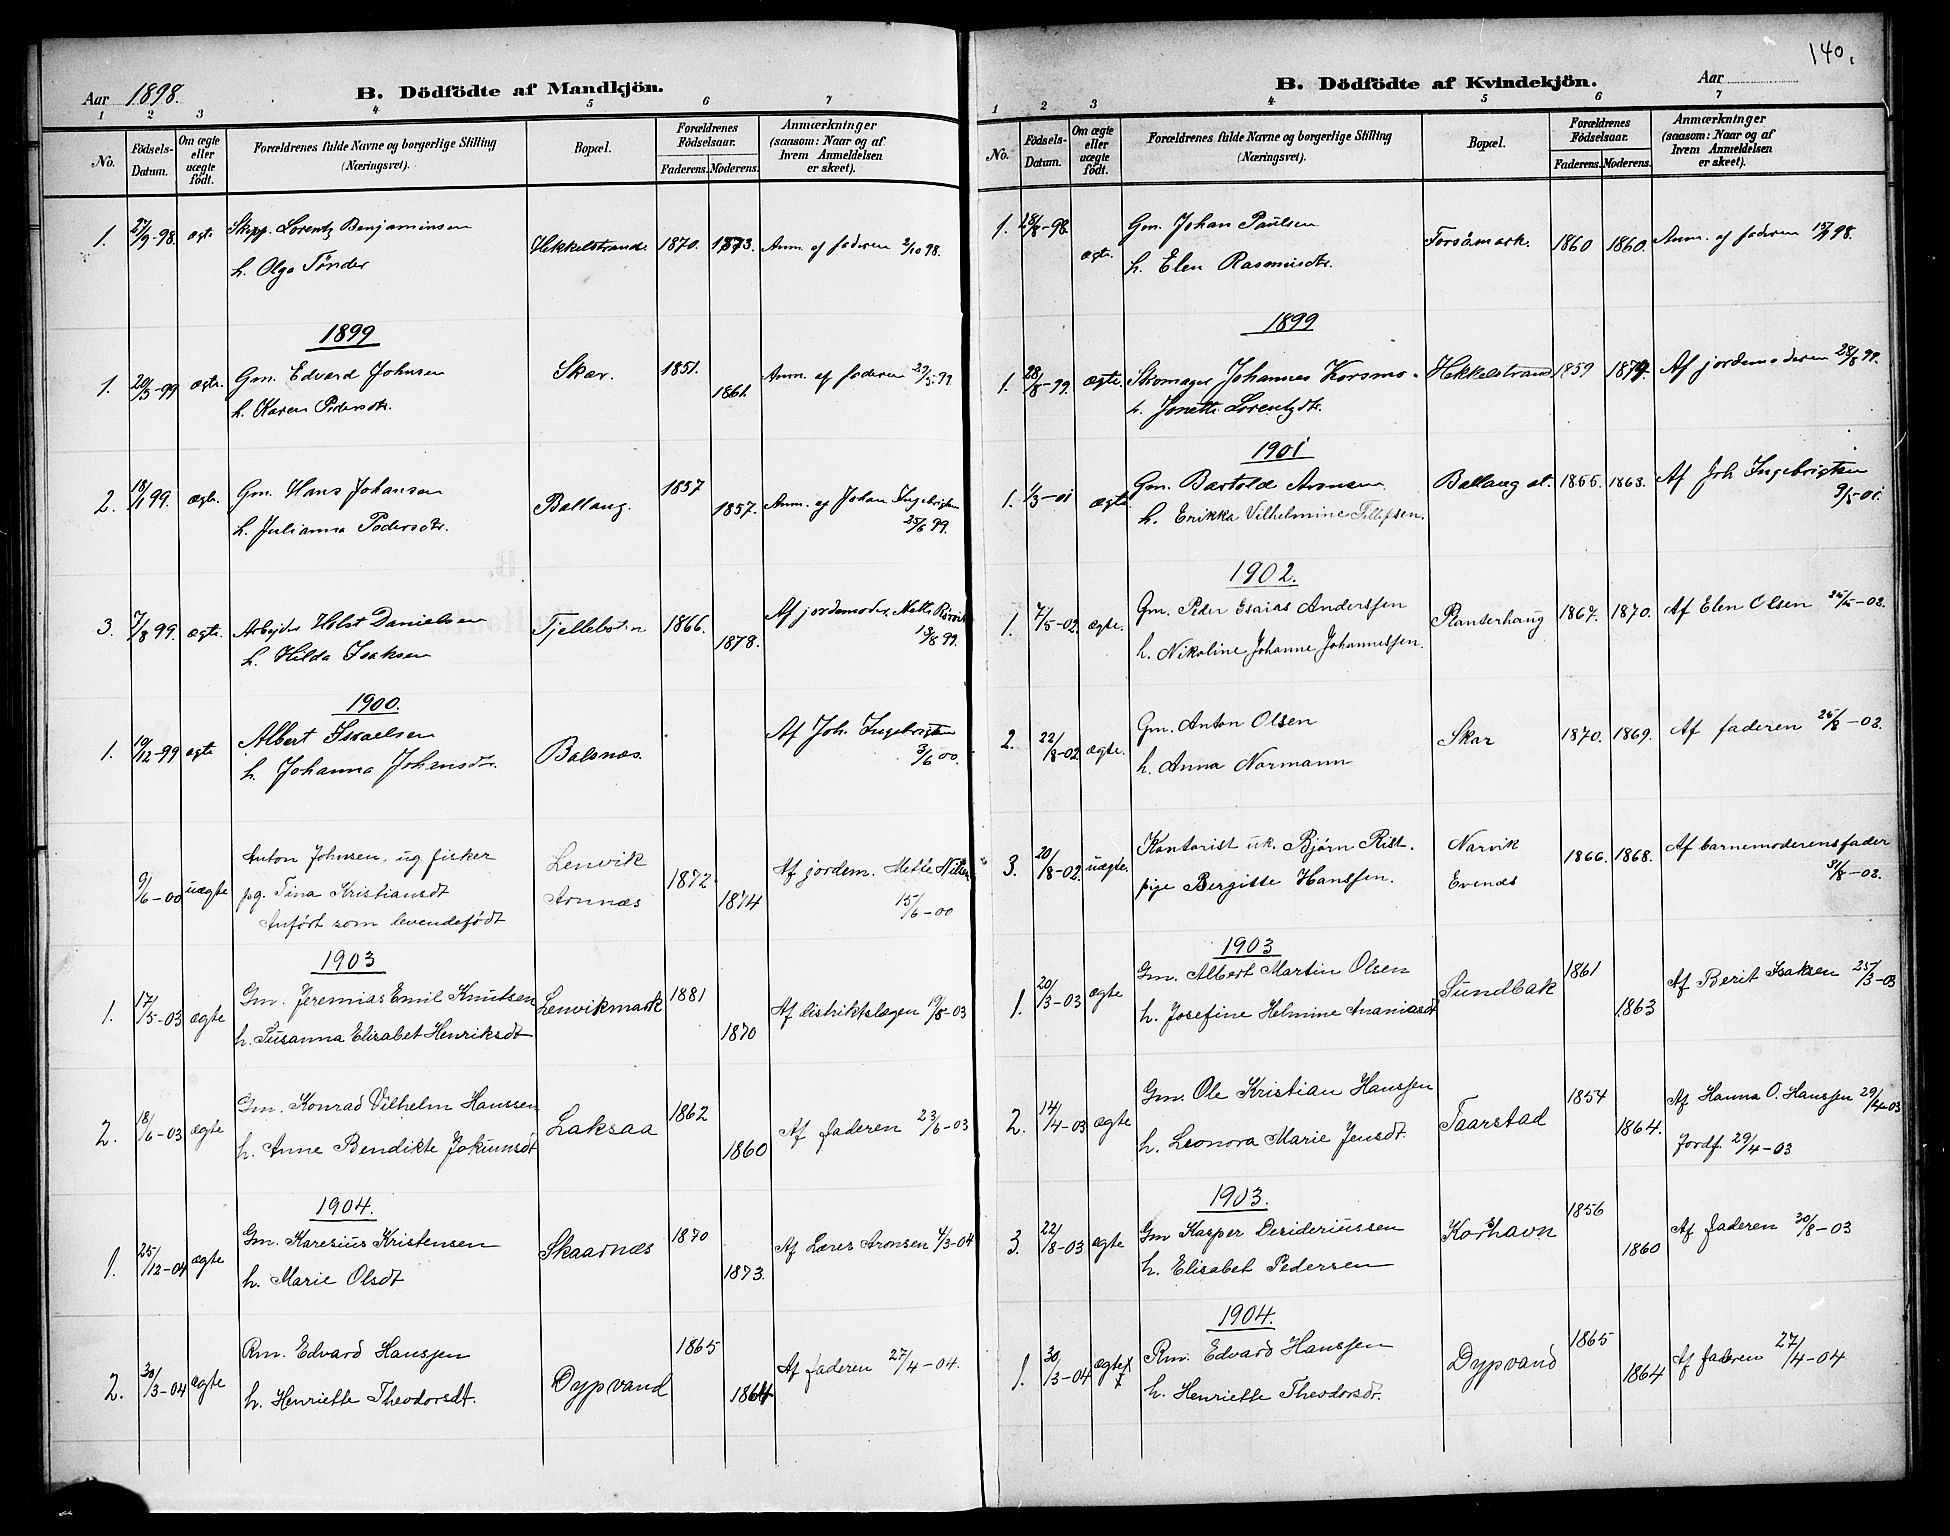 140.
Aar 1898.
B. Dödfödte af Mandkjön.
1 2 3 4 5 6 7
No.
Födsels-Datum.
Om ægte eller uægte födt.
Forældrenes fulde Navne og borgerlige Stilling (Næringsvei).
Bopæl.
Forældrenes Födselsaar.
Faderens. Moderens.
Anmærkninger (saasom: Naar og af hvem Anmeldelsen er skeet).
1. 27/9-98. ægte Skpp. Lorentz Benjaminsen
h. Olga Tönder
Hekkelstrand. 1870. 1873. Anm. af faderen 2/10 98.
1899
1. 20/3-99 ægte. Gm. Edvard Johnsen
h. Karen Pedersdtr.
Skar. 1851. 1861. Anm. af faderen 29/5-99
2. 18/1 99. ægte. Gm. Hans Johansen
h. Julianna Pedersdtr.
Ballang. 1857 1857. Anm. af Johan Ingebrigtsen
25/6 99.
3. 7/8 99. ægte. Arbeider Holst Danielsen
h. Hilda Isaksen
Tjellebotn 1866. 1878. Af jordemoder Mette
13/8 99.
1900.
1. 19/12-99 ægte Albert Israelsen
h. Johanna Johansdtr.
Balsnes. Af Joh. Ingebrigtsen
3/6 00.
9/6-00 uægte Anton Johnsen, ug fisker
pg. Tina Kristiansdt
Anført som levendefødt
Lenvik
Arnnæs
1872 1874 Af jordem. Mette Nilsen
15/6-00
1903
1. 17/5-03 ægte Gm. Jeremias Emil Knutsen
h. Susanna Elisabet Henriksdt
Lenvikmark 1881 1870 Af distriktslægen 19/8-03
2. 18/6-03 ægte Gm. Konrad Vilhelm Hanssen
h. Anne Bendikte Jokumsdt
Laksaa 1862 1860 Af faderen 23/6-03
1904.
1. 25/12-04 ægte Gm. Karesius Kristensen
h. Marie Olsdt
Skaarnæs 1870 1873. Af Lars Aronsen 4/3-04
2. 30/3-04 ægte Rm. Edvard Hanssen
h. Henriette Theodorsdt.
Dypvand 1865 1864 Af faderen 27/4-04.
B. Dödfödte af Kvindekjön.
Aar
1 2 3 4 5 6 7
No.
Födsels-Datum.
Om ægte eller uægte födt.
Forældrenes fulde Navne og borgerlige Stilling (Næringsvei).
Bopæl.
Forældrenes Födselsaar.
Faderens. Moderens.
Anmærkninger (saasom: Naar og af hvem Anmeldelsen er skeet).
1. 28/8-98. ægte. Gm. Johan Paulsen
h. Elen Rasmusdtr.
Forsåmark. 1860 1860. Anm. af faderen 98.
1899
1. 28/8-99. ægte. Skomager Johannes Korsmo
h. Jonette Lorentzdtr.
Hekkelstrand 1859 1879. Af jordemoderen 28/8 99.
1901
1. 1/3-01 ægte Gm. Bartold Aronsen
h. Erikka Vilhelmine Tillefsen.
Ballang 1855. 1863. Af Joh Ingebrigtsen
9/5-01.
1902.
1. 7/5-02. ægte. Gm. Peder Esaias Anderssen
h. Nikoline Johanne Johannessen.
Planterhaug 1867. 1870. Af Elen Olsen -02.
2. 22/8-02. ægte. Gm. Anton Olsen
h. Anna Normann
Skar 1870. 1869. Af faderen 26/8-02.
3. 20/8-02. uægte. Kontorist uk. Bjørn Rist.
pige Bergitte Hanssen.
Narvik
Evenes
1866. 1868. Af barnemoderens fader
31/8-02.
1903
1. 20/3-03 ægte Gm. Albert Martin Olsen
h. Josefine Helmine Ananiasdt
Sundbak 1861 1863 Af Berit Isaksen 25/3-03
2. 14/4-03 ægte Gm. Ole Kristian Hanssen
h. Leonora Marie Jensdt.
Taarstad 1854 1864. Af Hanna O. Hanssen 29/4-03
Jordf. 29/4-03
1903.
3. 22/8-03 ægte Gm Kasper Desideriussen
h. Elisabet Pedersen
Korhavn 1856 1860 Af faderen 30/8-03
1904.
1. 30/3-04 ægte Rm. Edvard Hanssen
h. Henriette Theodorsdt.
Dypvand 1865 1864 Af faderen 27/4-04